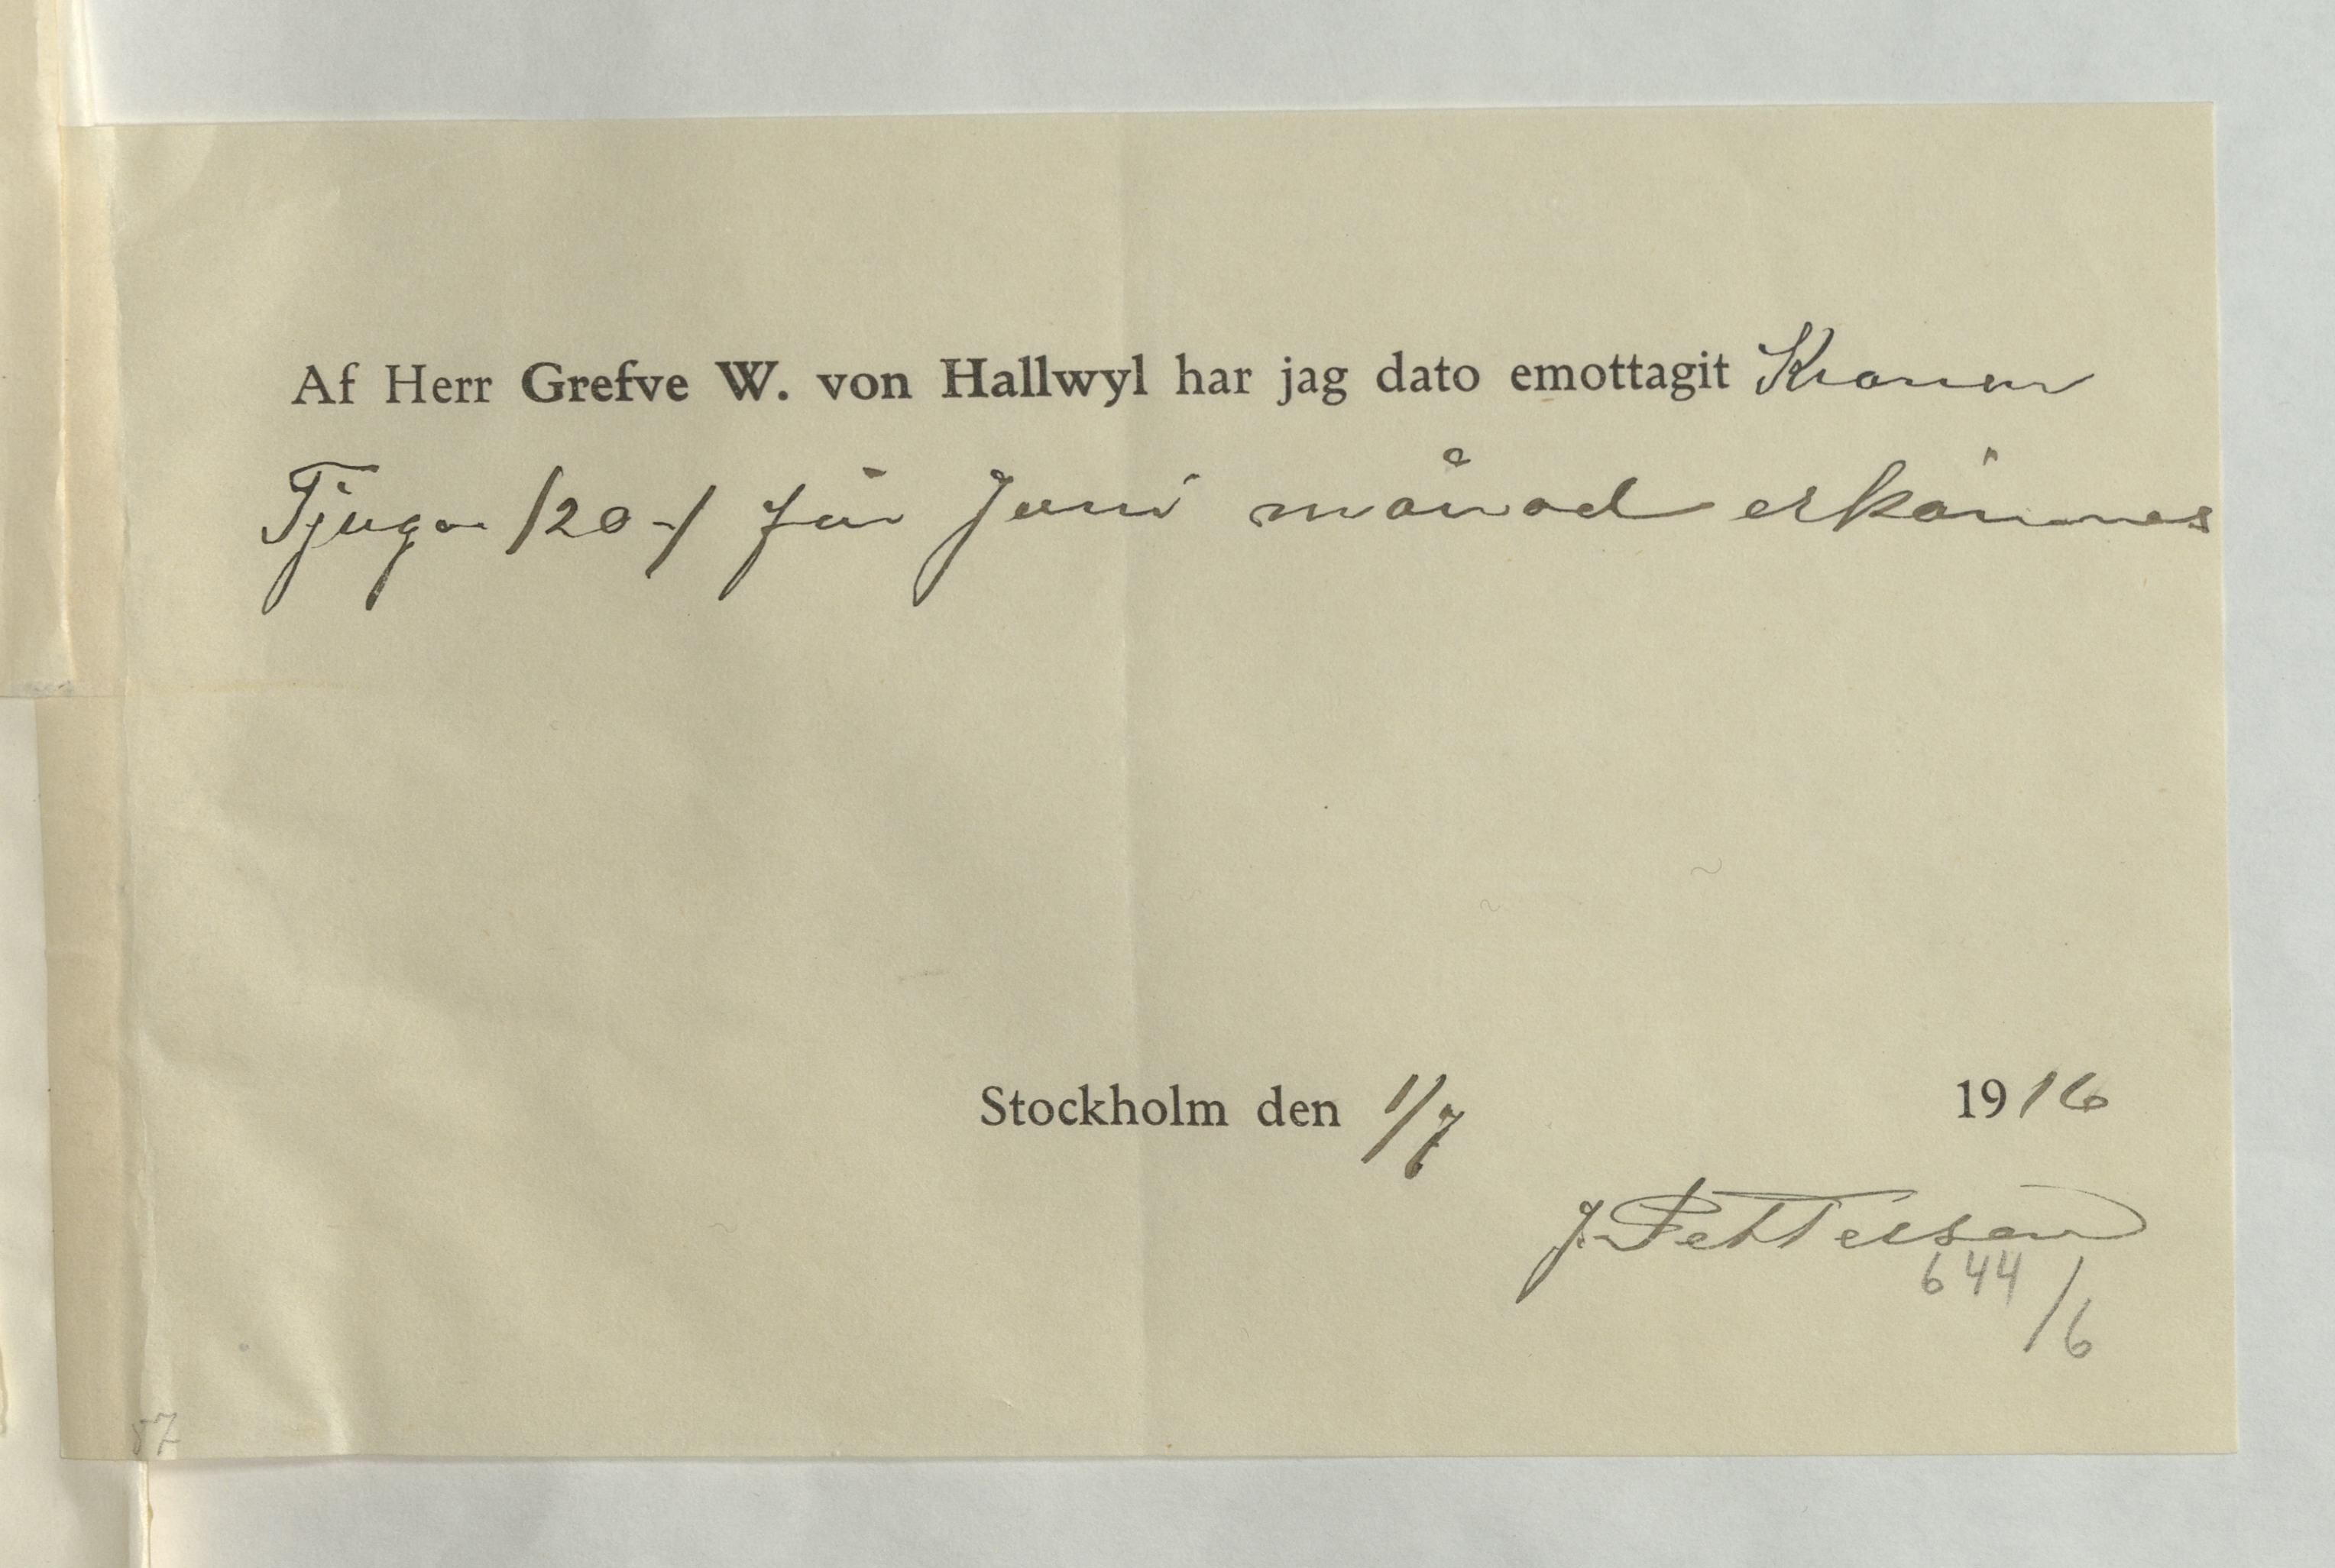 Af Herr Grefve W. von Hallwyl har jag dato emottagit Kronor
Tjugo /20-/ för Juni månad erkännes
Stockholm den 1/7 1916
J. Pettersson
644/6
57